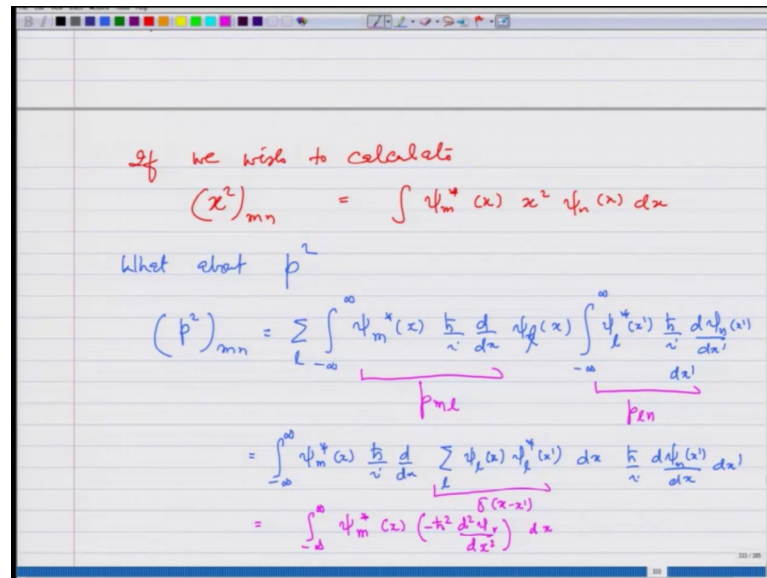 If we wish to calculate
(x²)ₘₙ = ∫ ψₘ* (x) x² ψₙ (x) dx
What about p²
(p²)ₘₙ = Σ_l ∫_{-∞}^{∞} ψₘ*(x) ħ/i d/dx ψ_l(x) ∫_{-∞}^{∞} ψ_l*(x') ħ/i dψₙ(x')/dx' dx'
p_{ml} p_{ln}
= ∫_{-∞}^{∞} ψₘ*(x) ħ/i d/dx Σ_l ψ_l(x) ψ_l*(x') dx ħ/i dψₙ(x')/dx dx'
δ(x-x')
= ∫_{-∞}^{∞} ψₘ*(x) (-ħ² d²ψ/dx²) dx